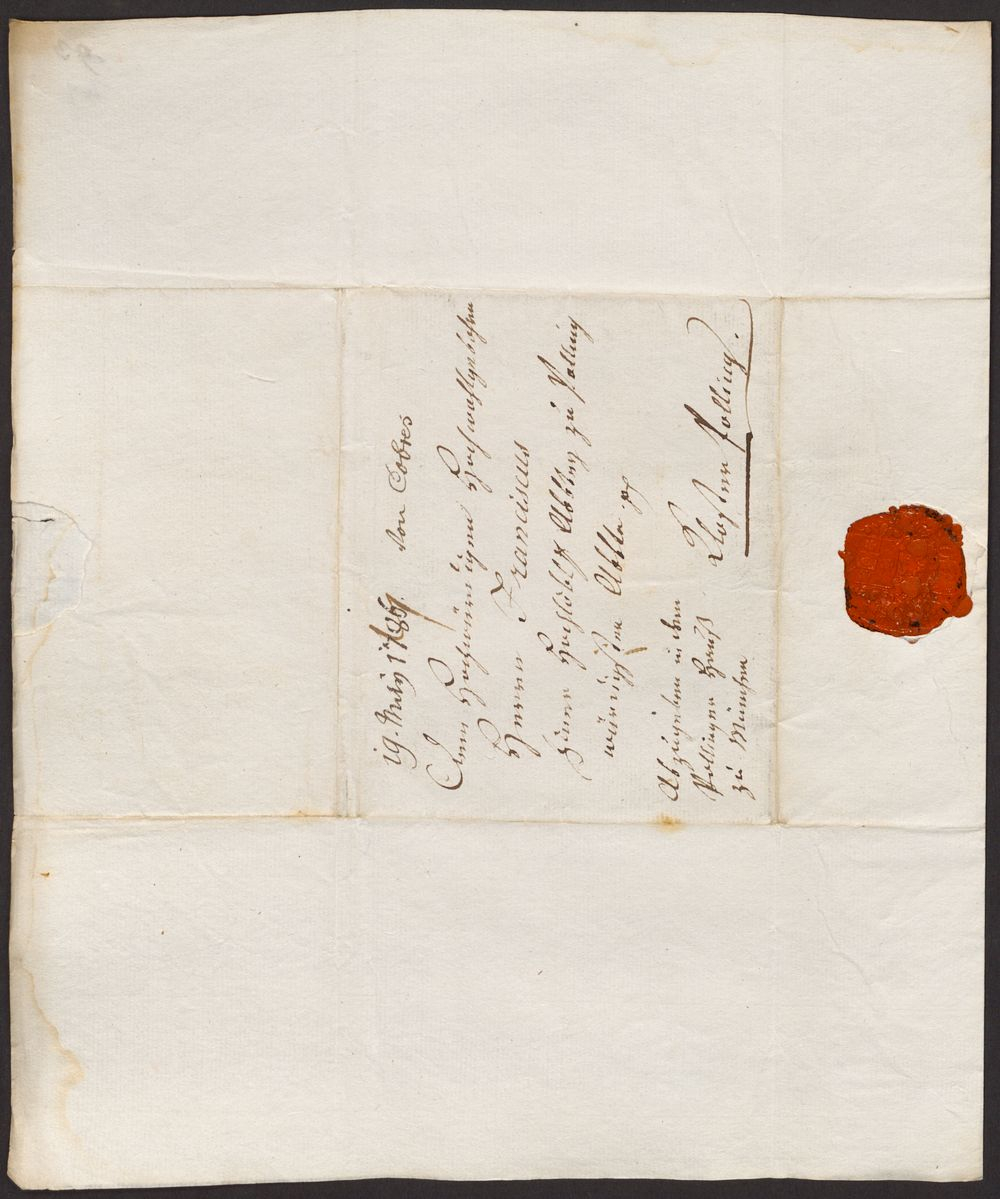 19. May 1789. von Cobres
Dem Hochwürdigen Hochwohlgebohrnen
Herrn Franciscus
Seiner Hochlöbl. Abbtey zu Polling
würdigsten Abbten
Kloster Polling.
Abzugeben in dem
Pollinger Hauß
zu München